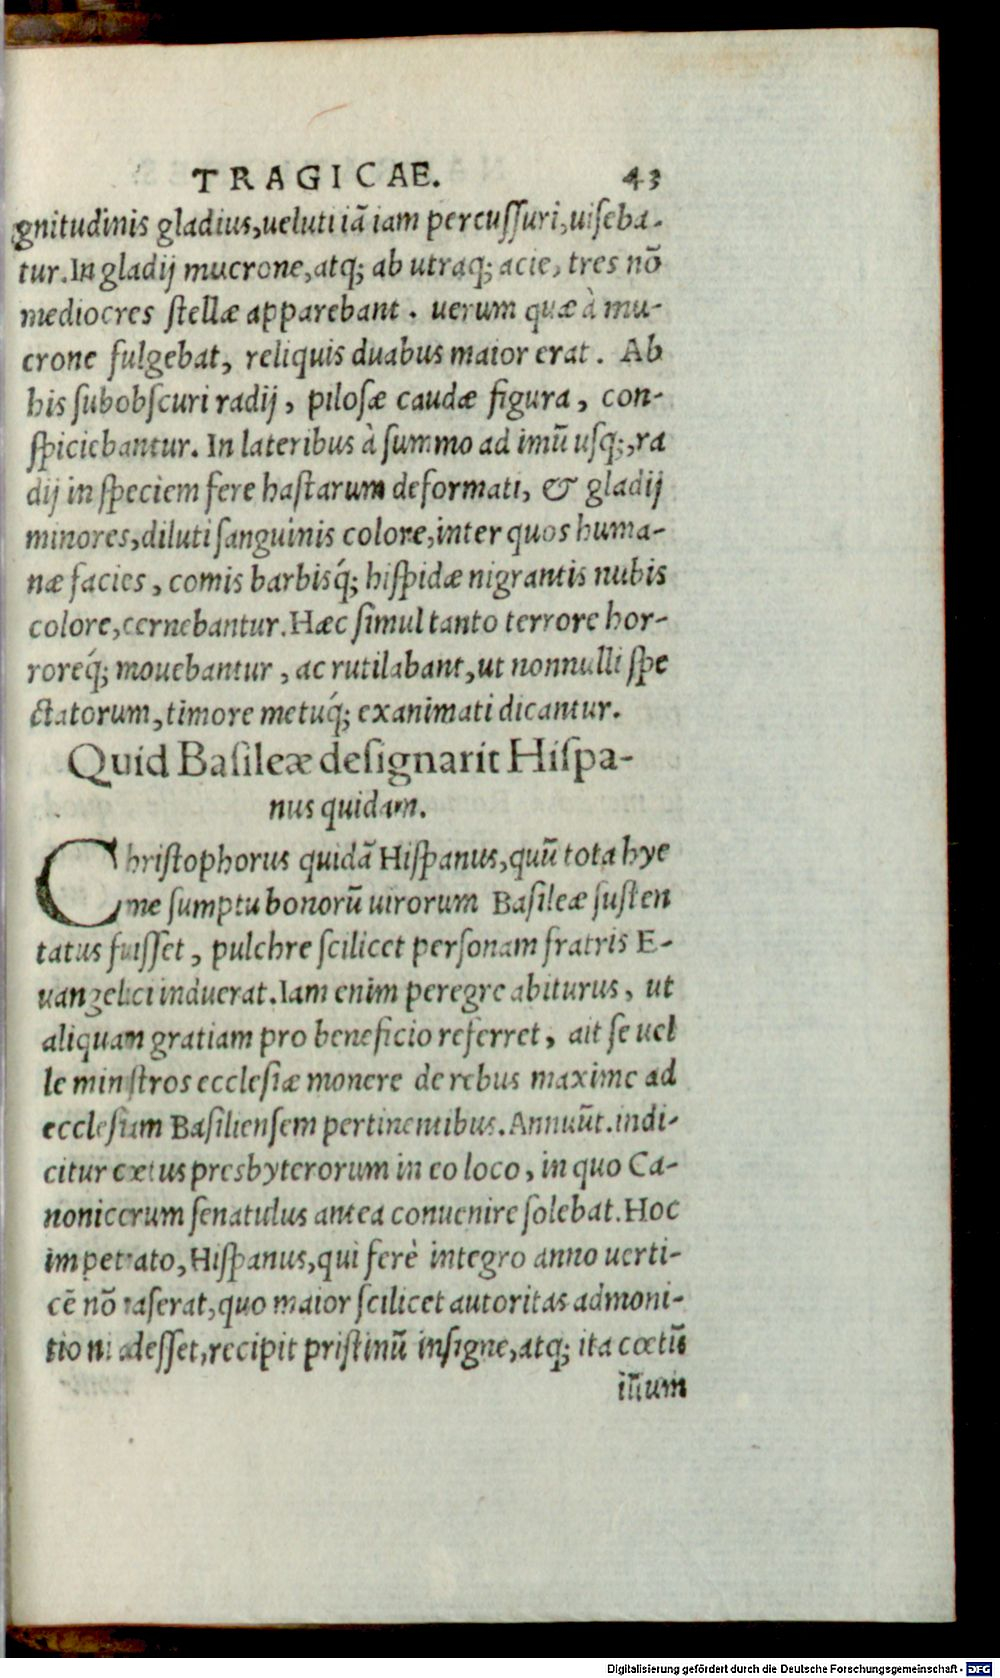 TRAGICAE. 43
gnitudinis gladius,ueluti iã iam percuſſuri,uiſeba-
tur.In gladij mucrone,atq; ab utraq; acie, tres nõ
mediocres ſtellæ apparebant . uerum quæ à mu-
crone fulgebat, reliquis duabus maior erat . Ab
his ſubobſcuri radij , piloſæ caudæ figura , con-
ſpiciebantur. In lateribus à ſummo ad imũ uſq;,ra
dij in ſpeciem fere haſtarum deformati, & gladij
minores,diluti ſanguinis colore,inter quos huma-
næ facies , comis barbisq́; hiſpidæ nigrantis nubis
colore,cernebantur.Hæc ſimul tanto terrore hor-
roreq́; mouebantur , ac rutilabant,ut nonnulli ſpe
ctatorum,timore metuq́; exanimati dicantur.
Quid Baſileæ deſignarit Hiſpa-
nus quidam.
Chriſtophorus quidã Hiſpanus,quũ tota hye
me ſumptu bonorũ uirorum Baſileæ ſuſten
tatus fuiſſet , pulchre ſcilicet perſonam fratris E-
uangelici induerat.Iam enim peregre abiturus, ut
aliquam gratiam pro beneficio referret, ait ſe uel
le miniſtros eccleſiæ monere de rebus maxime ad
eccleſiam Baſilienſem pertinentibus.Annuũt.indi-
citur cœtus presbyterorum in eo loco, in quo Ca-
nonicorum ſenatulus antea conuenire ſolebat.Hoc
impetrato,Hiſpanus,qui ferè integro anno uerti-
cẽ nõ raſerat,quo maior ſcilicet autoritas admoni-
tioni adeſſet,recipit priſtinũ inſigne,atq; ita cœtũ
illum
Digitalisierung gefördert durch die Deutsche Forschungsgemeinschaft - DFG